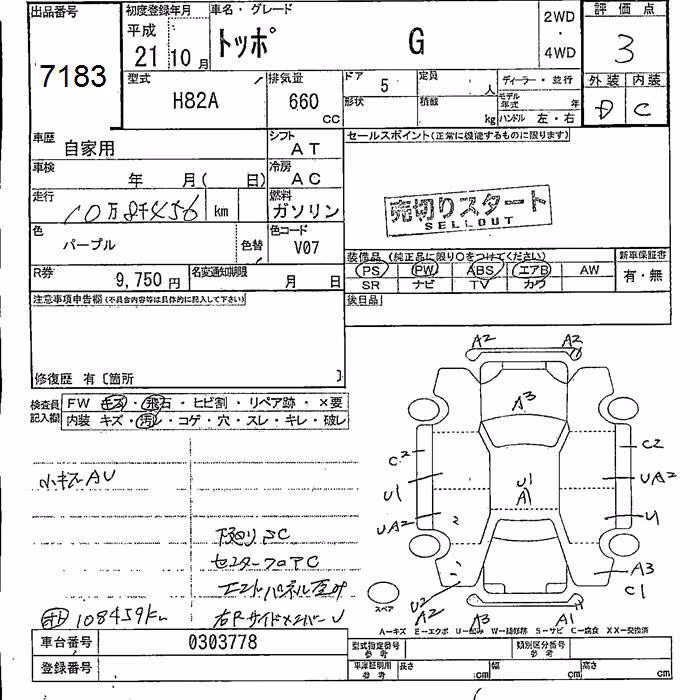 出品番号
7183
初度登録年月
平成
21 10 月
車名・グレード
トッポ G
2WD
・
4WD
評価点
3
型式
H82A
排気量
660
CC
ドア 5
形状
定員 人
積載 kg
ディーラー・並行
モデル年式 年
ハンドル 左・右
外装 内装
D C
車歴
自家用
シフト
AT
車検
年 月( 日)
冷房
AC
走行
10万8千456 km
燃料
ガソリン
色
パープル
色替
色コード
V07
R券
9,750 円
名変通知期限
月 日
セールスポイント(正常に機能するものに限ります)
売切りスタート
SELLOUT
装備品 (純正品に限り○をつけてください)
PS PW ABS エアB AW
SR ナビ TV カワ
新車保証書
有・無
後日品
注意事項申告欄(不具合内容等は具体的に記入して下さい)
修復歴 有〔箇所 〕
検査員記入欄
FW キズ・飛石・ヒビ割・リペア跡・×要
内装 キズ・汚レ・コゲ・穴・スレ・キレ・破レ
小キズAU
下廻りSC
センターフロアC
108459km
右Rサイドメンバー U
A2 A2
A3
C2 C2
U1 U1 A1 UA2
UA2 U1
U2
A2 A3 A1
A3
C1
スペア
A−キズ E−エクボ U−凹み W−補修跡 S−サビ C−腐食 XX−交換済
車台番号 0303778
登録番号
型式指定番号 参考
類別区分番号 参考
車庫証明用 参考
長さ cm 幅 cm 高さ cm